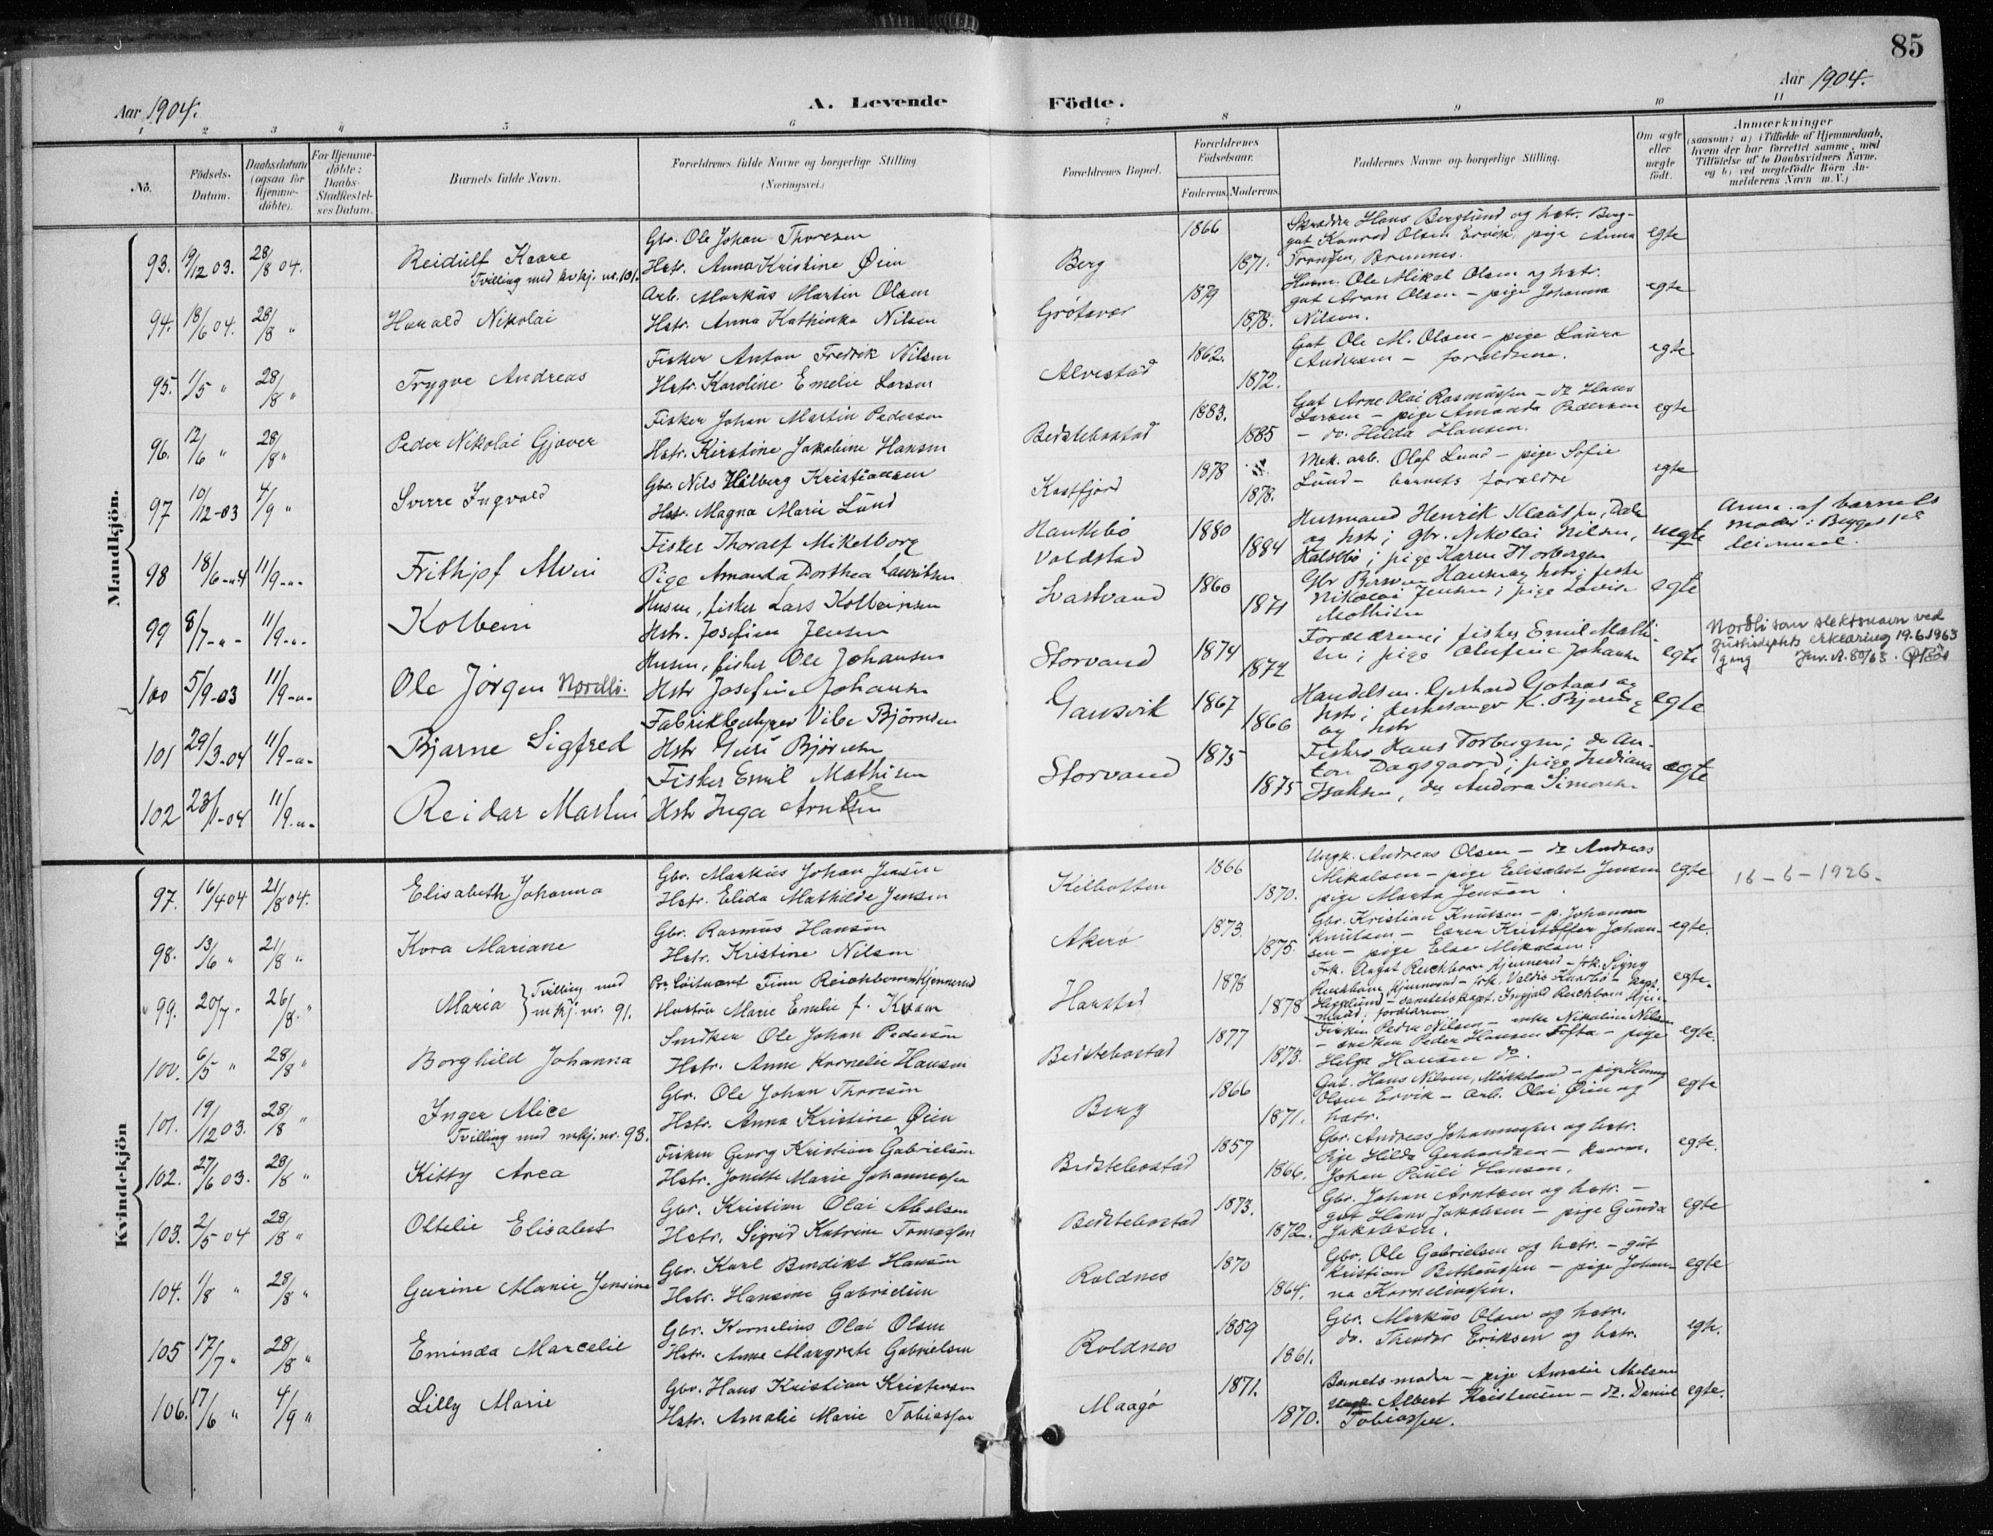 85
Aar 1904.
A. Levende Födte.
Aar 1904.
1 2 3 4 5 6 7 8 9 10 11
No.
Födsels-Datum.
Daabsdatum (ogsaa for Hjemme-döbte).
For Hjemme-döbte: Daabs-Stadfæstel-ses Datum.
Barnets fulde Navn.
Forældrenes fulde Navne og borgerlige Stilling
(Næringsvei.)
Forældrenes Bopæl.
Forældrenes Födselsaar.
Faderens. Moderens.
Faddernes Navne og borgerlige Stilling.
Om ægte eller uægte födt.
Anmærkninger
(saasom: a) i Tilfælde af Hjemmedaab,
hvem der har forrettet samme, med
Tilföielse af to Daabsvidners Navne,
og b) ved uægtefödte Börn An-
melderens Navn m. V.)
Mandkjön.
93. 19/12 03. 28/8 04. Reidulf Kaare
Tvilling med kvkj. nr. 101.
Gbr. Ole Johan Thoresen
Hstr. Anna Kristine Øien
Berg 1866 1871.
Skrædder Hans Berglund og hstr. Berg-
gut Konrad Olsen Ervik, pige Anna
egte
94. 18/6 04. 28/8 " Harald Nikolai
Arb. Markus Martin Olsen
Hstr. Anna Kathinka Nilsen
Grøtavær 1879 1878.
Husm. Ole Mikal Olsen og hstr.
gut Aron Olsen - pige Johanna
Nilsen.
egte
95. 1/5 " 28/8 " Trygve Andreas
Fisker Anton Fredrik Nilsen
Hstr. Karoline Emelie Larsen
Alvestad 1862. 1872.
Gut Ole M. Olsen - pige Laura
Andersen - forældrene.
egte
96. 12/6 " 28/8 " Peder Nikolai Gjøver
Fisker Johan Martin Pedersen
Hstr. Kirstine Jakobine Hansen
Bedstebostad 1883. 1885
Gut Arne Olai Rasmussen - do Hans
Larsen - pige Amanda Pedersen
- do. Hilda Hansen.
egte
97 10/12-03 4/9 " Sverre Ingvald
Gbr. Nils Hilberg Kristiansen
Hstr. Magna Marie Lund
Kastfjord 1878 1878.
Mek. arb. Olaf Lund - pige Sofie
Lund - barnets forældre
egte
98 18/6-04 11/9-"- Frithjof Alvin
Fisker Thoralf Mikelborg
Pige Amanda Dorthea Lauritsen
Voldstad 1880 1884
Husmand Henrik Klausen, Dale
og hstr; Gbr. Nikolai Nilsen,
pige Karen Torbergsen
uegte
Anm. af barnets
moder: Begges 1ste
leiermaal.
99 8/7-"- 11/9-"- Kolbein
Husm., fisker Lars Kolbeinsen
Hstr. Josefine Jensen
Svartvand 1860 1871
Nikolai Jensen; pige Lovise
Mathisen
egte
100 5/9-03 11/9-"- Ole Jørgen Nordli.
Husm., fisker Ole Johansen
Hstr Josefine Johansen
Storvand 1874 1872
Forældrene; fisker Emil Mathi-
sen; pige Olufine Johansen
egte
Nordli som slektsnavn ved
Justisdeptets erklæring 19.6.1963
Jnr. A. 80/63.
101 29/3-04 11/9-"- Bjarne Sigfred
Fabrikbestyrer Vibe Bjørnsen
Hstr Guri Bjørnsen
Gausvik 1867 1866
Handelsm. Gerhard Gotaas og
hstr; kirkesanger K. Bjering
og hstr
egte
102 23/1-04 11/9-"- Reidar Martin
Fisker Emil Mathisen
Hstr Inga Arntsen
Storvand 1875 1875
Fisker Hans Torbergsen; do An-
ton Dagsgaard; pige Indiana
Isaksen, do Andora Simonsen
egte
Kvindekjön
97. 16/4 04 21/8 04. Elisabeth Johanna
Gbr. Markus Johan Jensen
Hstr. Elida Mathilde Jensen
Kilbotten 1866 1870.
Ungk. Andreas Olsen - do Andreas
Mikalsen - pige Elisabet Jensen
pige Marta Jensen
egte
16-6-1926.
98. 13/6 " 21/8 " Kora Mariane
Gbr. Rasmus Hansen
Hstr. Kristine Nilsen
Akerø 1873. 1875.
Gbr. Kristian Knutsen - p. Johanna
Knutsen - lærer Kristoffer Johan-
sen - pige Else Mikalsen.
egte.
99. 20/7 " 26/8. " Maria } Tvilling med mkj. nr. 91.
Pr. Løitnant Finn Reichborn Kjennerud
Hustru Marie Emelie f. Kvam
Harstad 1876 1878
Frk. Aagot Reichborn Kjennerud - frk. Signy
Reichborn Kjennerud - frk. Valdis
Hegglund - sanitetskapt. Ingjald Reichborn Kjen-
nerud; forældrene
egte.
100. 6/5 " 28/8 " Borghild Johanna
Snedker Ole Johan Pedersen
Hstr. Anne Kornelie Hansen
Bedstebostad 1877 1873.
Fisker Peder Nilsen - enke Nikoline Nilsen
- snedker Peder Hansen Tofta - pige
Helga Hansen do.
egte.
101. 19/12 03. 28/8 " Inger Alice
Tvilling med mkj. nr. 93.
Gbr. Ole Johan Thoresen
Hstr. Anna Kristine Øien
Berg 1866 1871.
Gut. Hans Nilsen, Møkkeland - pige Henny
Olsen Ervik - arb. Olai Øien og
hstr.
egte
102. 27/6 03. 28/8 " Kitty Area
Fisker Georg Kristian Gabrielsen
Hstr. Jonette Marie Johannessen
Bedstebostad 1857 1866.
Gbr. Andreas Johannessen og hstr.
Pige Hilda Gerhardsen -
Johan Pauli Hansen.
egte.
103. 2/5 04 28/8 " Oltelie Elisabet
Gbr. Kristian Olai Abelsen
Hstr. Sigrid Katrine Tomassen
Bedstebostad 1873. 1872.
Gbr. Johan Arntsen og hstr. -
gut Hans Jakobsen - pige Gunda
Jakobsen.
egte
104. 1/8 " 28/8 " Gurine Marie Jensine
Gbr. Karl Bendikt Hansen
Hstr. Hansine Gabrielsen
Roldnes 1870 1864.
Gbr. Ole Gabrielsen og hstr. - gut
Kristian Bethuessen - pige Johan-
na Kornelinssen.
egte
105 17/7 " 28/8 " Eminda Marcelie
Gbr. Kornelius Olai Olsen
Hstr. Anne Margrete Gabrielsen
Roldnes 1859 1861.
Gbr. Markus Olsen og hstr.
do. Theodor Eriksen og hstr.
egte.
106. 17/6 " 4/9 " Lilly Marie
Gbr. Hans Kristian Kristensen
Hstr. Amalie Marie Tobiassen
Maagø 1871. 1870.
Barnets moder - pige Amalie Abelsen
Ungk. Albert Kristensen - do. Daniel
Tobiassen.
egte.